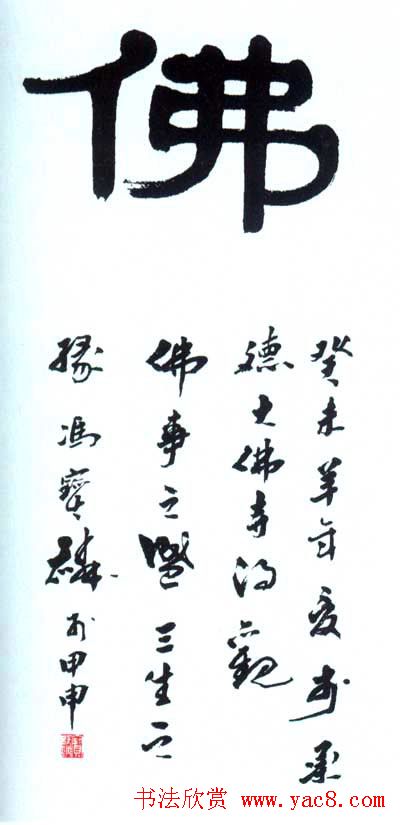 佛
癸未羊年夏於承
德大佛寺得觀
佛事之盛三生之
緣馮寶麟於甲申
书法欣赏 www.yac8.com